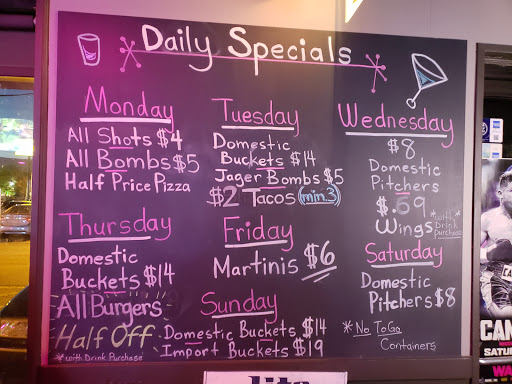 Daily Specials
Monday
All Shots $4
All Bombs $5
Half Price Pizza
Tuesday
Domestic
Buckets $14
Jager Bombs $5
$2 Tacos (min. 3)
Wednesday
$8
Domestic
Pitchers
$.59
Wings *with*
Drink
Purchase
Thursday
Domestic
Buckets $14
All Burgers
Half Off
*with Drink Purchase
Friday
Martinis $6
Saturday
Domestic
Pitchers $8
Sunday
Domestic Buckets $14
Import Buckets $19
*No ToGo
Containers
lite
CAN
SATU
WA